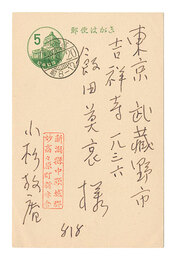 郵便はがき
5
東京 武蔵野市
吉祥寺 一九三六
飯田莫哀様
新潟県中頸城郡
妙高々原町
小杉放庵
8/8